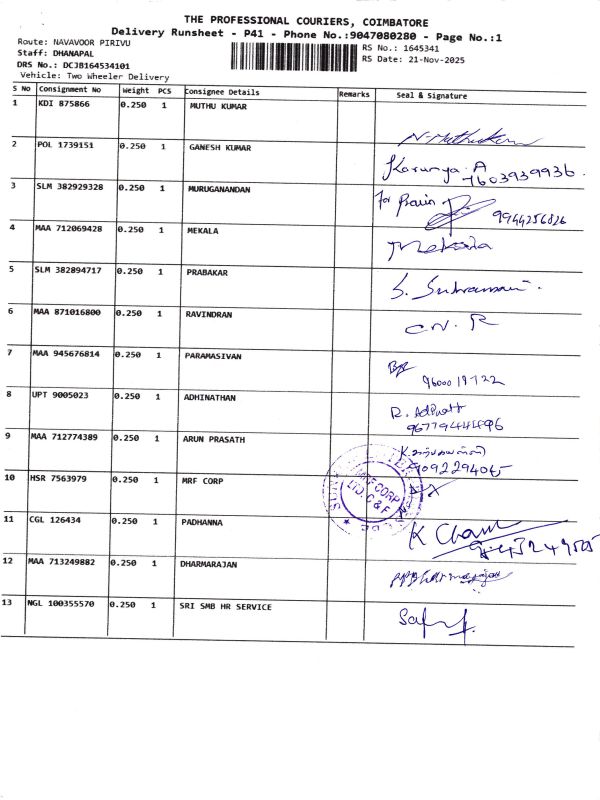 THE PROFESSIONAL COURIERS, COIMBATORE
Delivery Runsheet - P41 - Phone No.:9047080280 - Page No.:1
Route: NAVAVOOR PIRIVU
Staff: DHANAPAL
DRS No.: DCJB164534101
Vehicle: Two Wheeler Delivery
RS No.: 1645341
RS Date: 21-Nov-2025
S No Consignment No Weight PCS Consignee Details Remarks Seal & Signature
1 KDI 875866 0.250 1 MUTHU KUMAR
2 POL 1739151 0.250 1 GANESH KUMAR Karunya. A
7603939936.
3 SLM 382929328 0.250 1 MURUGANANDAN for Pravin 9944256826
4 MAA 712069428 0.250 1 MEKALA Mekala
5 SLM 382894717 0.250 1 PRABAKAR S.
6 MAA 871016800 0.250 1 RAVINDRAN C.N. R
7 MAA 945676814 0.250 1 PARAMASIVAN
8 UPT 9005023 0.250 1 ADHINATHAN R.
9 MAA 712774389 0.250 1 ARUN PRASATH
10 HSR 7563979 0.250 1 MRF CORP MRF CORP
LTD. C & F
11 CGL 126434 0.250 1 PADHANNA K
12 MAA 713249882 0.250 1 DHARMARAJAN
13 NGL 100355570 0.250 1 SRI SMB HR SERVICE